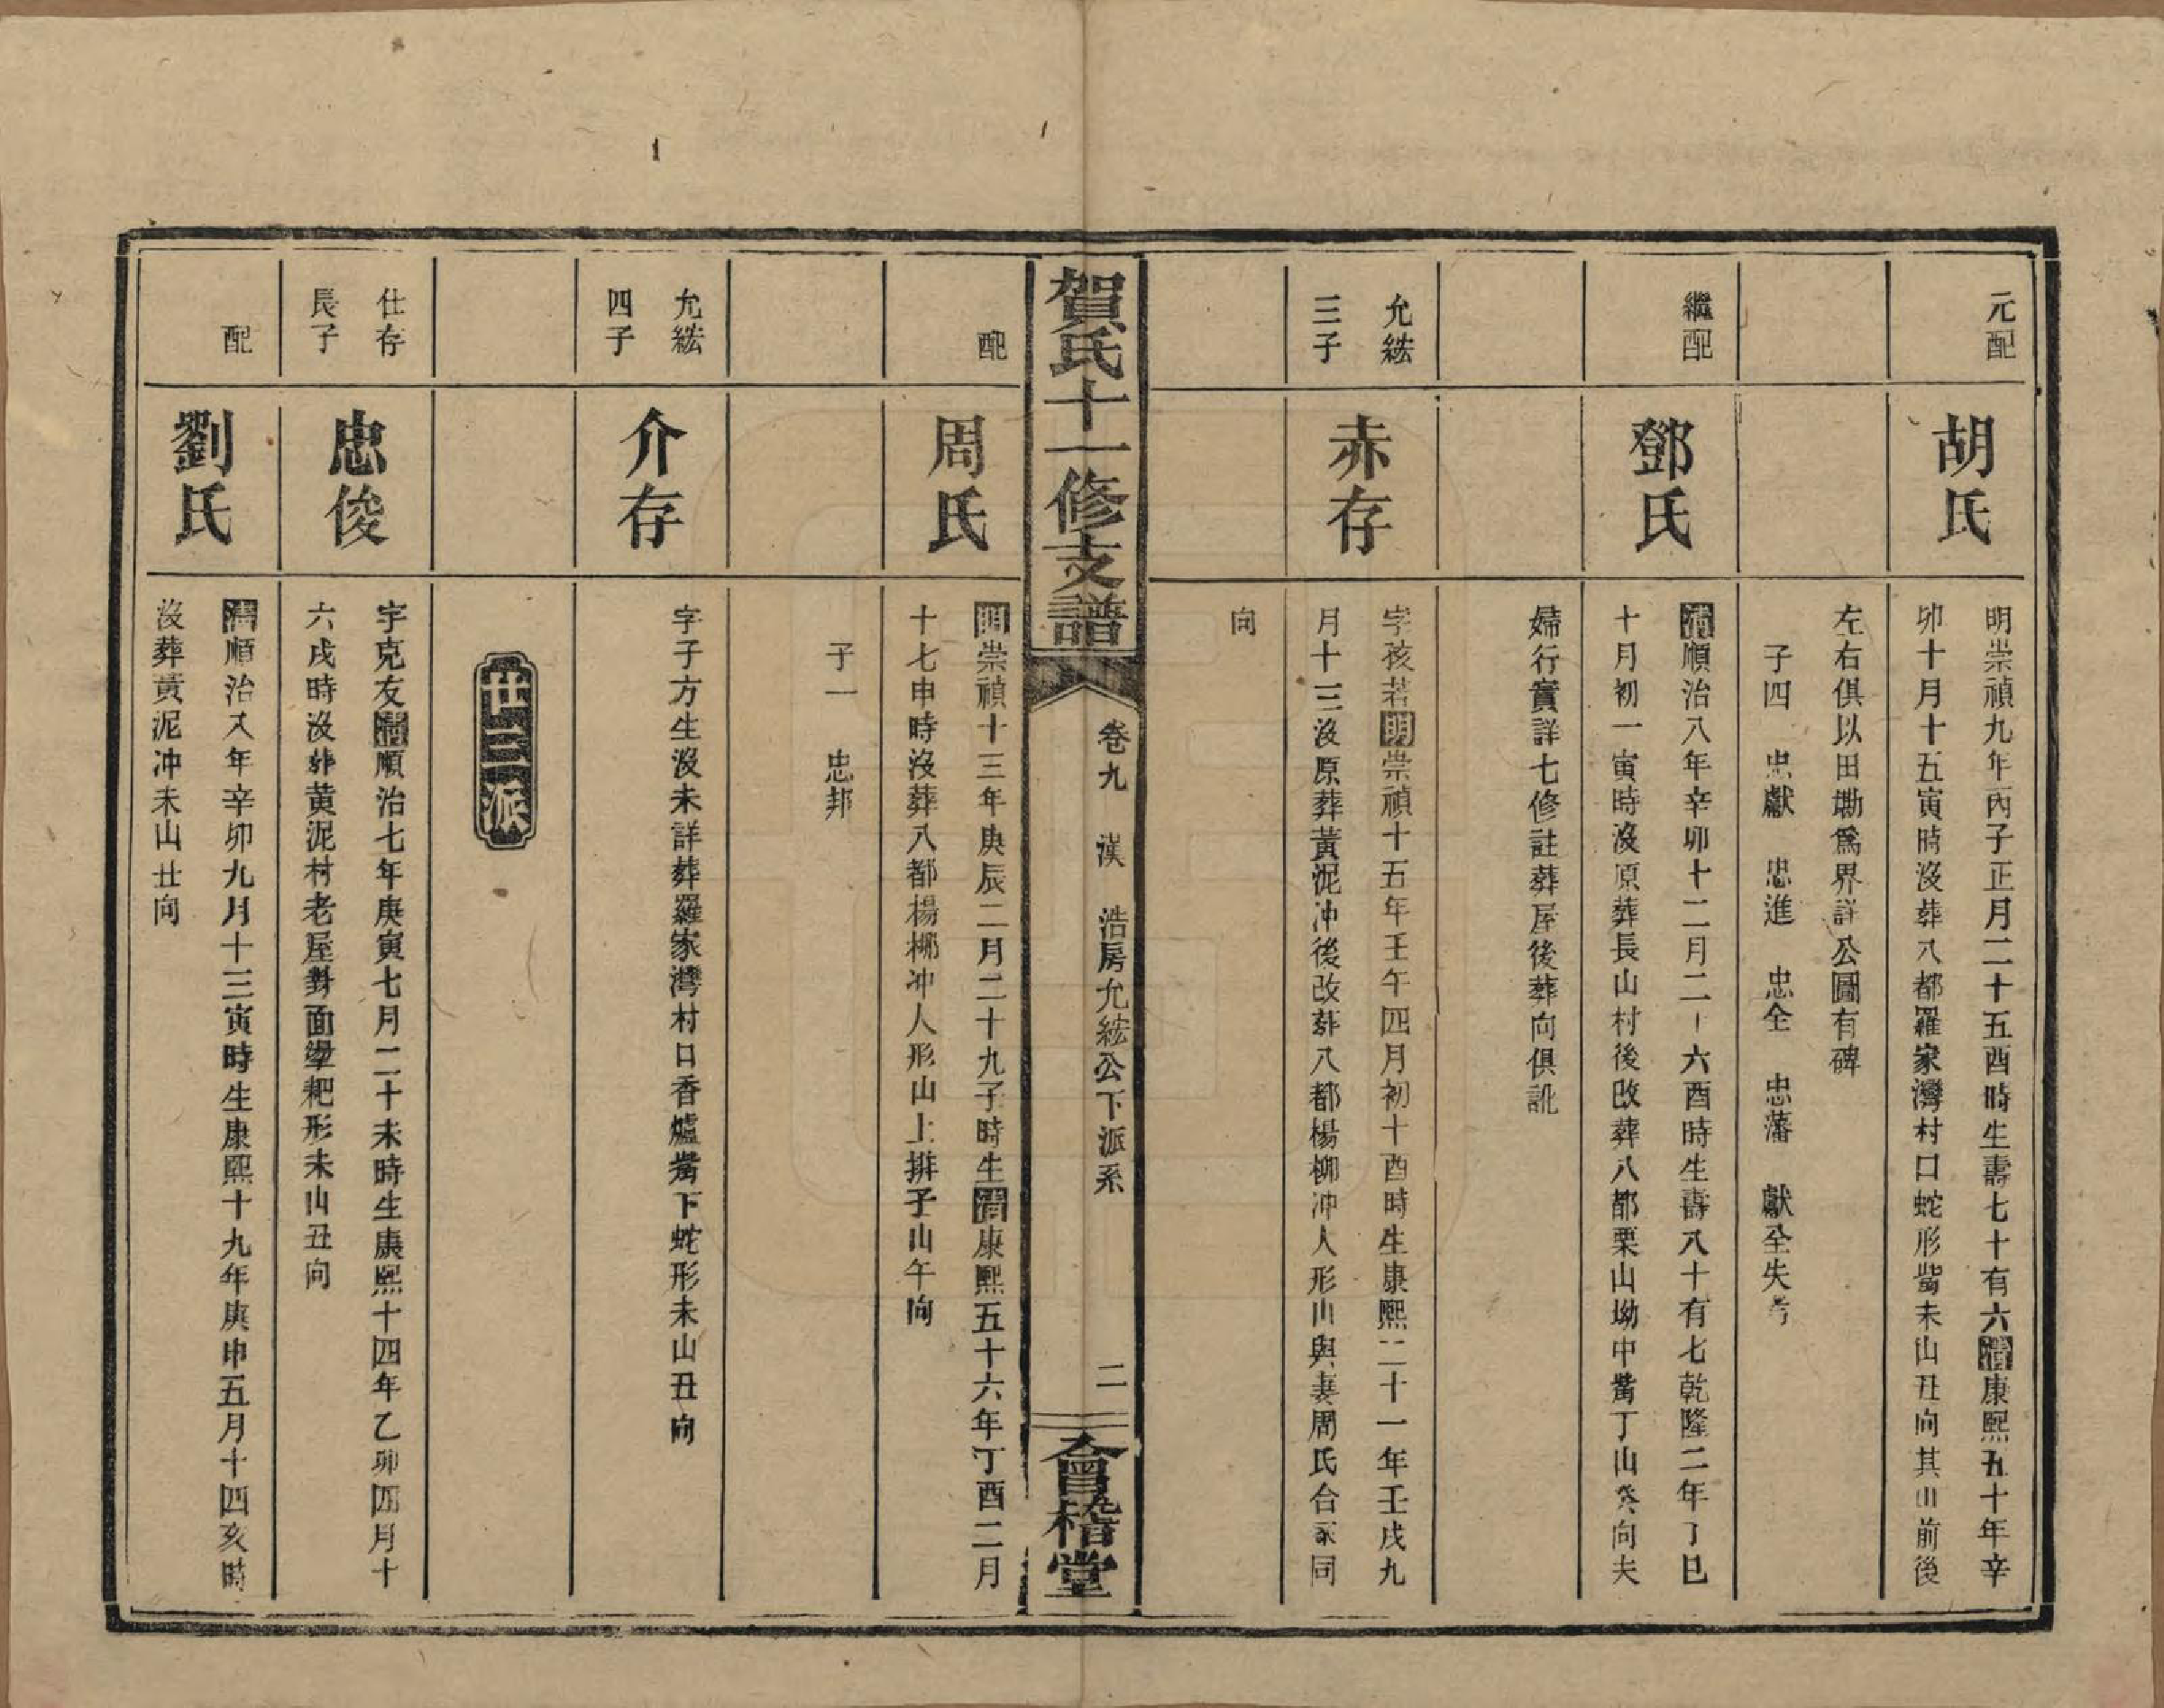 元配
胡氏
明崇禎九年丙子正月二十五酉時生壽七十有六清康熙五十年辛
卯十月十五寅時沒葬八都羅家灣村口蛇形嘴未山丑向其山前後
左右俱以田墈爲界詳公圖有碑
子四 忠獻 忠進 忠全 忠藩 獻全失考
繼配
鄧氏
清順治八年辛卯十二月二十六酉時生壽八十有七乾隆二年丁巳
十月初一寅時沒原葬長山村後改葬八都栗山坳中嘴丁山癸向夫
婦行實詳七修註葬屋後葬向俱訛
允紘
三子
赤存
字孩若明崇禎十五年壬午四月初十酉時生康熙二十一年壬戌九
月十三沒原葬黃泥冲後改葬八都楊柳冲人形山與妻周氏合冢同
向
賀氏十一修支譜
卷九 漢 浩房允紘公下派系
二
會稽堂
配
周氏
明崇禎十三年庚辰二月二十九子時生清康熙五十六年丁酉二月
十七申時沒葬八都楊梛冲人形山上排子山午向
子一 忠邦
允紘
四子
介存
字子方生沒未詳葬羅家灣村口香爐嘴下蛇形未山丑向
廿三派
仕存
長子
忠俊
字克友清順治七年庚寅七月二十未時生康熙十四年乙卯四月十
六戌時沒葬黃泥村老屋對面犂耙形未山丑向
配
劉氏
清順治八年辛卯九月十三寅時生康熙十九年庚申五月十四亥時
沒葬黃泥冲未山丑向